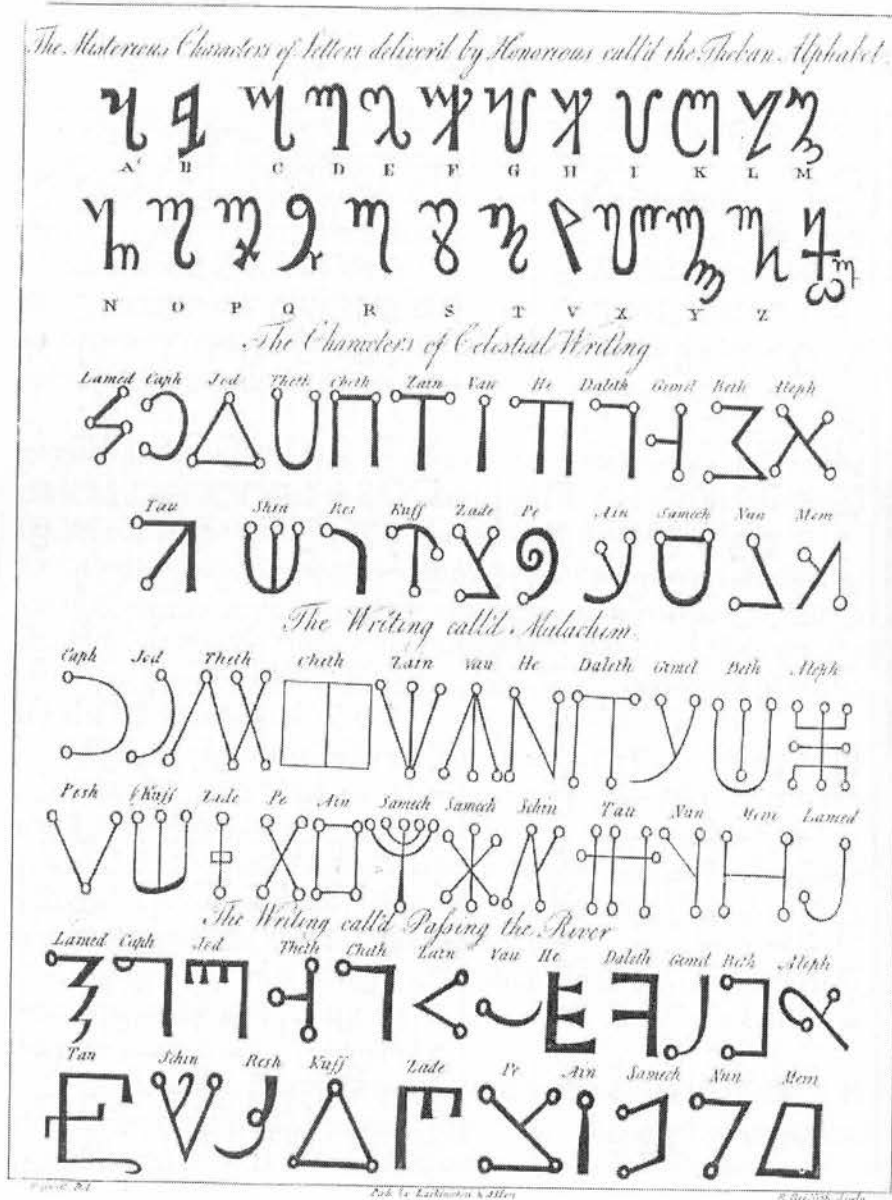 The Misterious Characters of Letters deliver'd by Honorious call'd the Theban Alphabet.
A B C D E F G H I K L M
N O P Q R S T V X Y Z
The Characters of Celestial Writing
Lamed Caph Jod Theth Cheth Zain Vau He Daleth Gimel Beth Aleph
Tau Shin Res Kuff Zade Pe Ain Samech Nun Mem
The Writing call'd Malachim
Caph Jod Theth Cheth Zain Vau He Daleth Gimel Beth Aleph
Resh Kuff Zade Pe Ain Samech Samech Schin Tau Nun Mem Lamed
The Writing call'd Paſsing the River
Lamed Caph Jod Theth Cheth Zain Vau He Daleth Gimel Beth Aleph
Tau Schin Resh Kuff Zade Pe Ain Samech Nun Mem
Pub. by Lackington & Allen